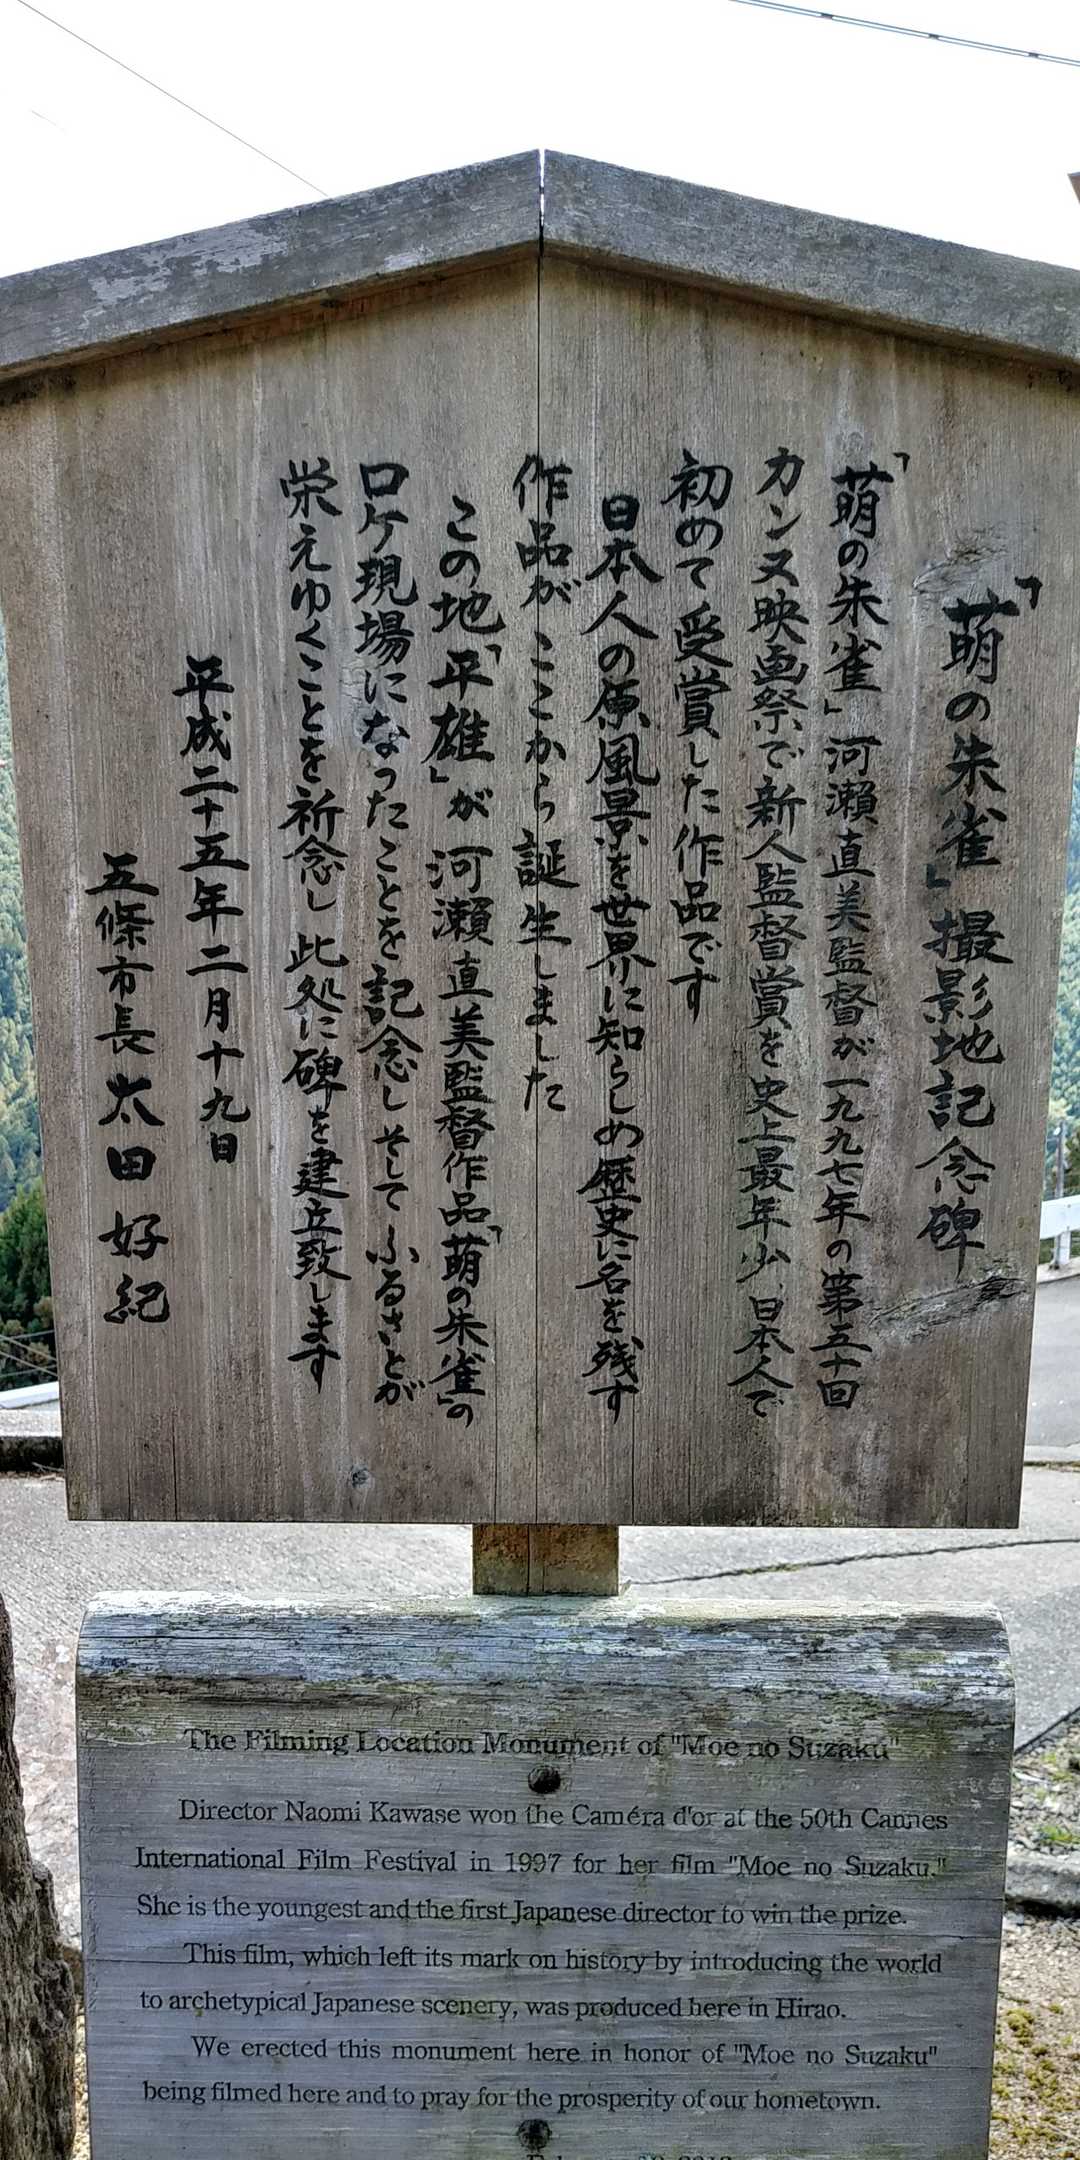 「萌の朱雀」撮影地記念碑
「萌の朱雀」河瀬直美監督が一九九七年の第五十回
カンヌ映画祭で新人監督賞を史上最年少、日本人で
初めて受賞した作品です
日本人の原風景を世界に知らしめ歴史に名を残す
作品がここから誕生しました
この地「平雄」が河瀬直美監督作品「萌の朱雀」の
ロケ現場になったことを記念しそしてふるさとが
栄えゆくことを祈念し此処に碑を建立致します
平成二十五年二月十九日
五條市長太田好紀
The Filming Location Monument of "Moe no Suzaku"
Director Naomi Kawase won the Caméra d'or at the 50th Cannes
International Film Festival in 1997 for her film "Moe no Suzaku."
She is the youngest and the first Japanese director to win the prize.
This film, which left its mark on history by introducing the world
to archetypical Japanese scenery, was produced here in Hirao.
We erected this monument here in honor of "Moe no Suzaku"
being filmed here and to pray for the prosperity of our hometown.